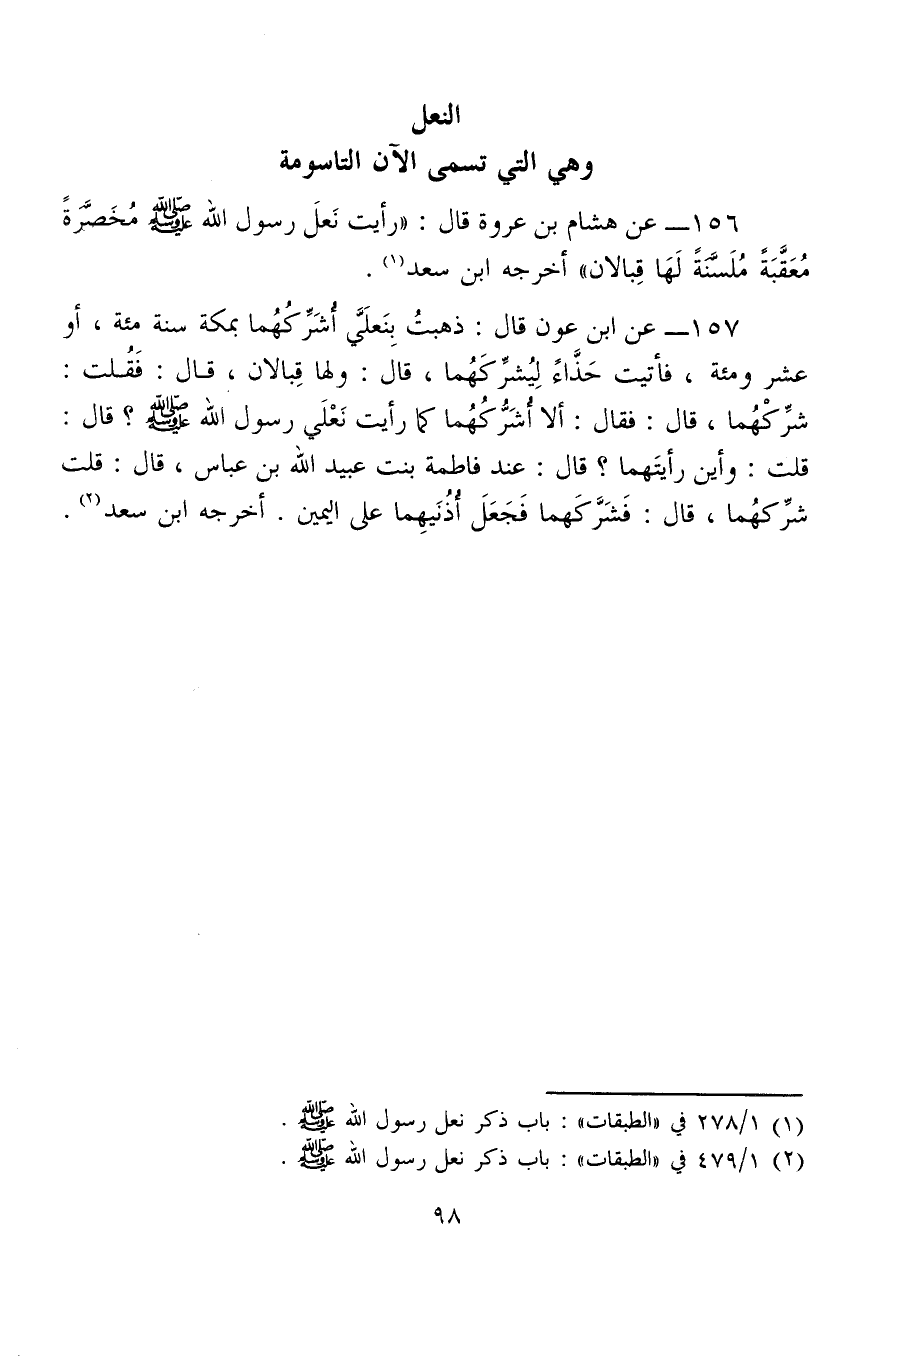 النعل
وهي التي تسمى الآن التاسومة
١٥٦ــ عن هشام بن عروة قال : «رأيت نَعلَ رسول الله ﷺ مُخَصَّرَةً
مُعَقَّبَةً مُلَسَّنَةً لَهَا قِبالان» أخرجه ابن سعد(١) .
١٥٧ــ عن ابن عون قال : ذهبتُ بِنَعلَيَّ أُشَرِّكُهُما بمكة سنة مئة ، أو
عشر ومئة ، فأتيت حَذَّاءً لِيُشرِّكَهُما ، قال : ولها قِبالان ، قـال : فَقُـلت :
شرِّكْهُما ، قال : فقال : ألا أُشَرُّكُهُما كما رأيت نَعْلَي رسول الله ﷺ ؟ قال :
قلت : وأين رأيتَهما ؟ قال : عند فاطمة بنت عبيد الله بن عباس ، قال : قلت
شرِّكهُما ، قال : فَشَرَّكَهما فَجَعَلَ أُذُنَيهِما على اليمين . أخرجه ابن سعد(٢) .
(١) ٢٧٨/١ في «الطبقات» : باب ذكر نعل رسول الله ﷺ .
(٢) ٤٧٩/١ في «الطبقات» : باب ذكر نعل رسول الله ﷺ .
٩٨